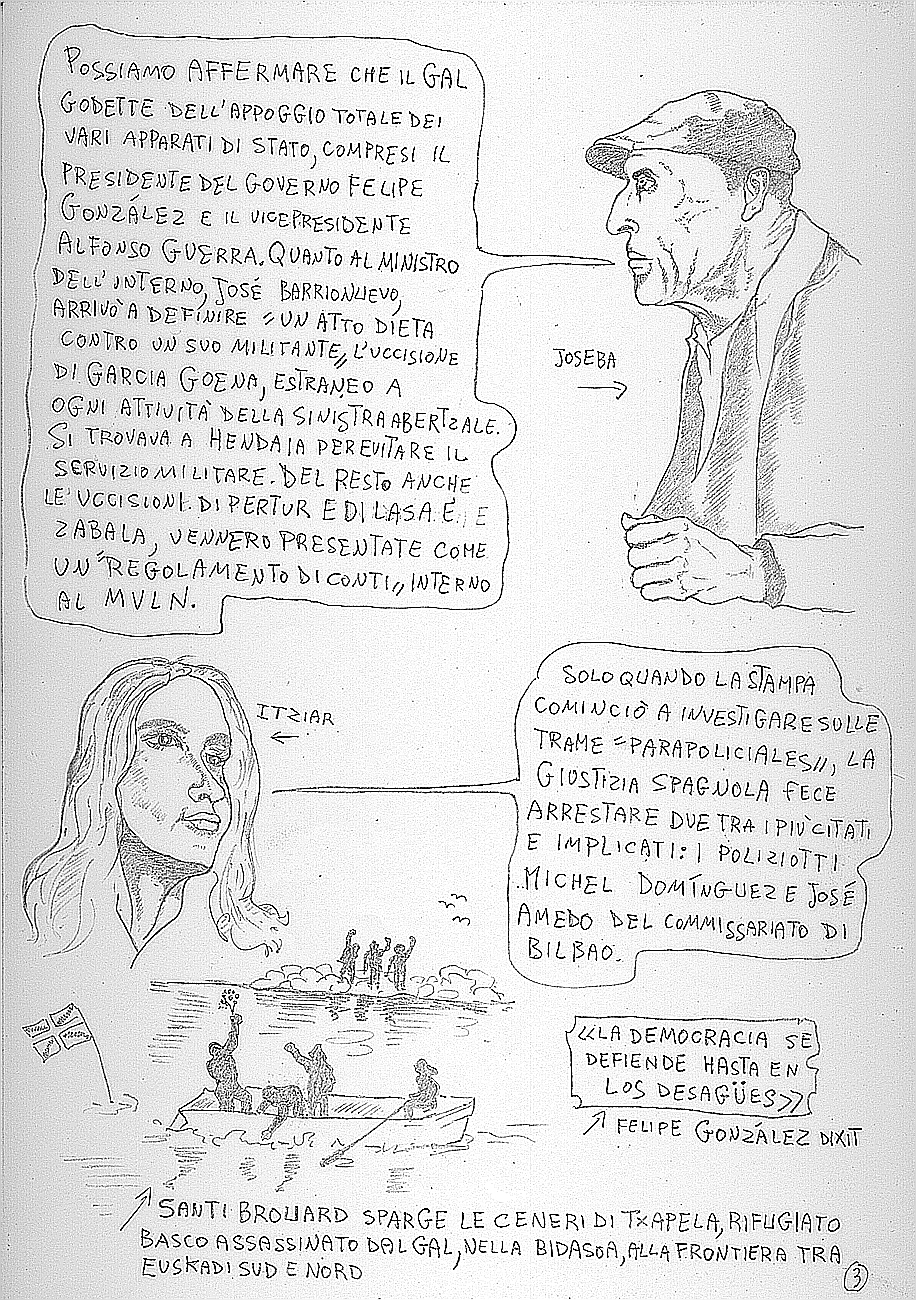 POSSIAMO AFFERMARE CHE IL GAL
GODETTE DELL'APPOGGIO TOTALE DEI
VARI APPARATI DI STATO, COMPRESI IL
PRESIDENTE DEL GOVERNO FELIPE
GONZÁLEZ E IL VICEPRESIDENTE
ALFONSO GUERRA. QUANTO AL MINISTRO
DELL'INTERNO, JOSÉ BARRIONUEVO,
ARRIVÒ A DEFINIRE "UN ATTO DI ETA
CONTRO UN SUO MILITANTE", L'UCCISIONE
DI GARCIA GOENA, ESTRANEO A
OGNI ATTIVITÀ DELLA SINISTRA ABERTZALE.
SI TROVAVA A HENDAIA PER EVITARE IL
SERVIZIO MILITARE. DEL RESTO ANCHE
LE UCCISIONI DI PERTUR E DI LASA E
ZABALA, VENNERO PRESENTATE COME
UN "REGOLAMENTO DI CONTI" INTERNO
AL MVLN.
JOSEBA
ITZIAR
SOLO QUANDO LA STAMPA
COMINCIÒ A INVESTIGARE SULLE
TRAME "PARAPOLICIALES", LA
GIUSTIZIA SPAGNOLA FECE
ARRESTARE DUE TRA I PIÙ CITATI
E IMPLICATI: I POLIZIOTTI
MICHEL DOMÍNGUEZ E JOSÉ
AMEDO DEL COMMISSARIATO DI
BILBAO.
«LA DEMOCRACIA SE
DEFIENDE HASTA EN
LOS DESAGÜES»
FELIPE GONZÁLEZ DIXIT
SANTI BROUARD SPARGE LE CENERI DI TXAPELA, RIFUGIATO
BASCO ASSASSINATO DAL GAL, NELLA BIDASOA, ALLA FRONTIERA TRA
EUSKADI SUD E NORD
3